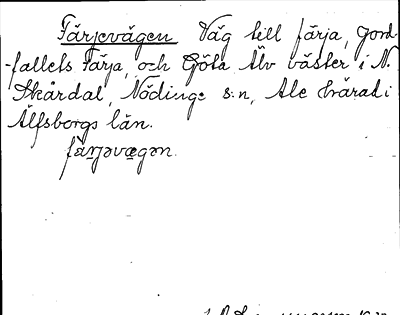 Färjevägen Väg till färja, Jord-
-fallets Färja, och Göta Älv väster i N.
Skårdal, Nödinge s:n, Ale härad i
Älfsborgs län.
färjəvægən.